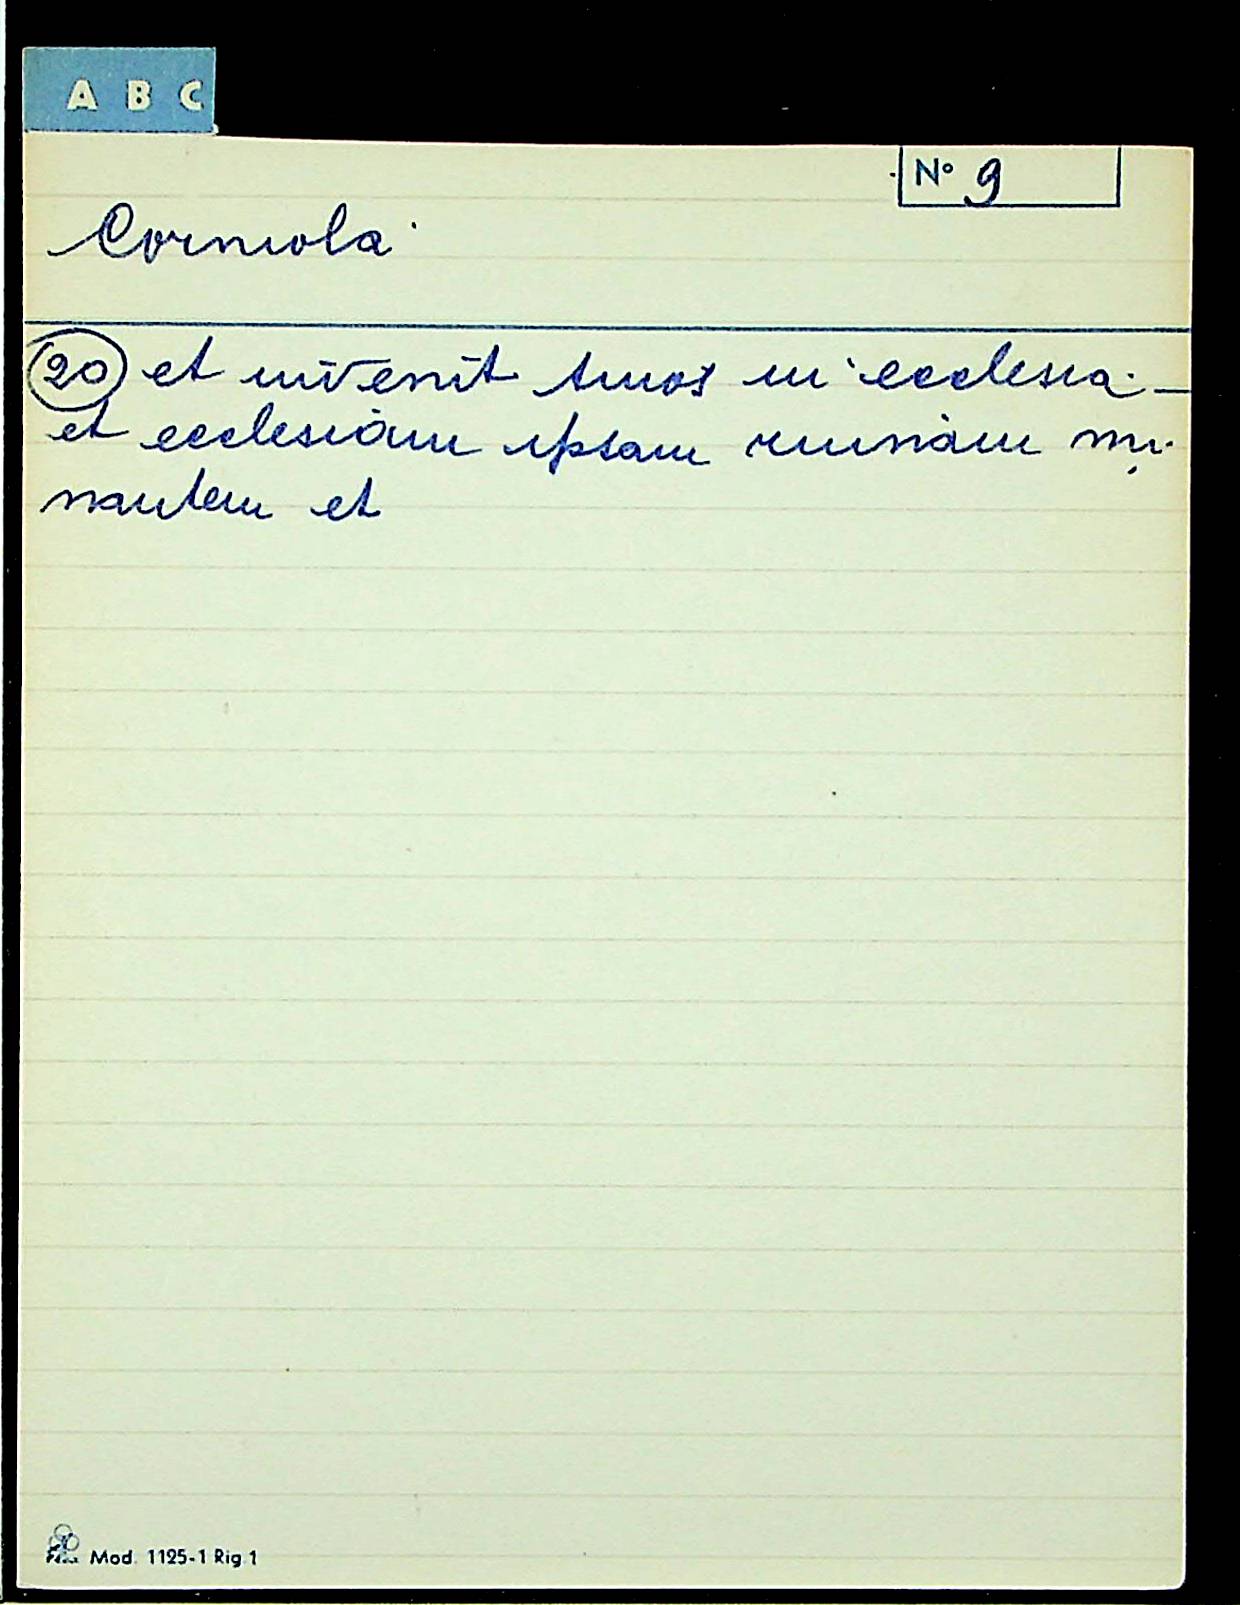 A B C
N° 9
Corniola
20 et invenit timos in ecclesia
et ecclesiam ipsam ruinam mi-
nantem et
Mod. 1125-1 Rig. 1